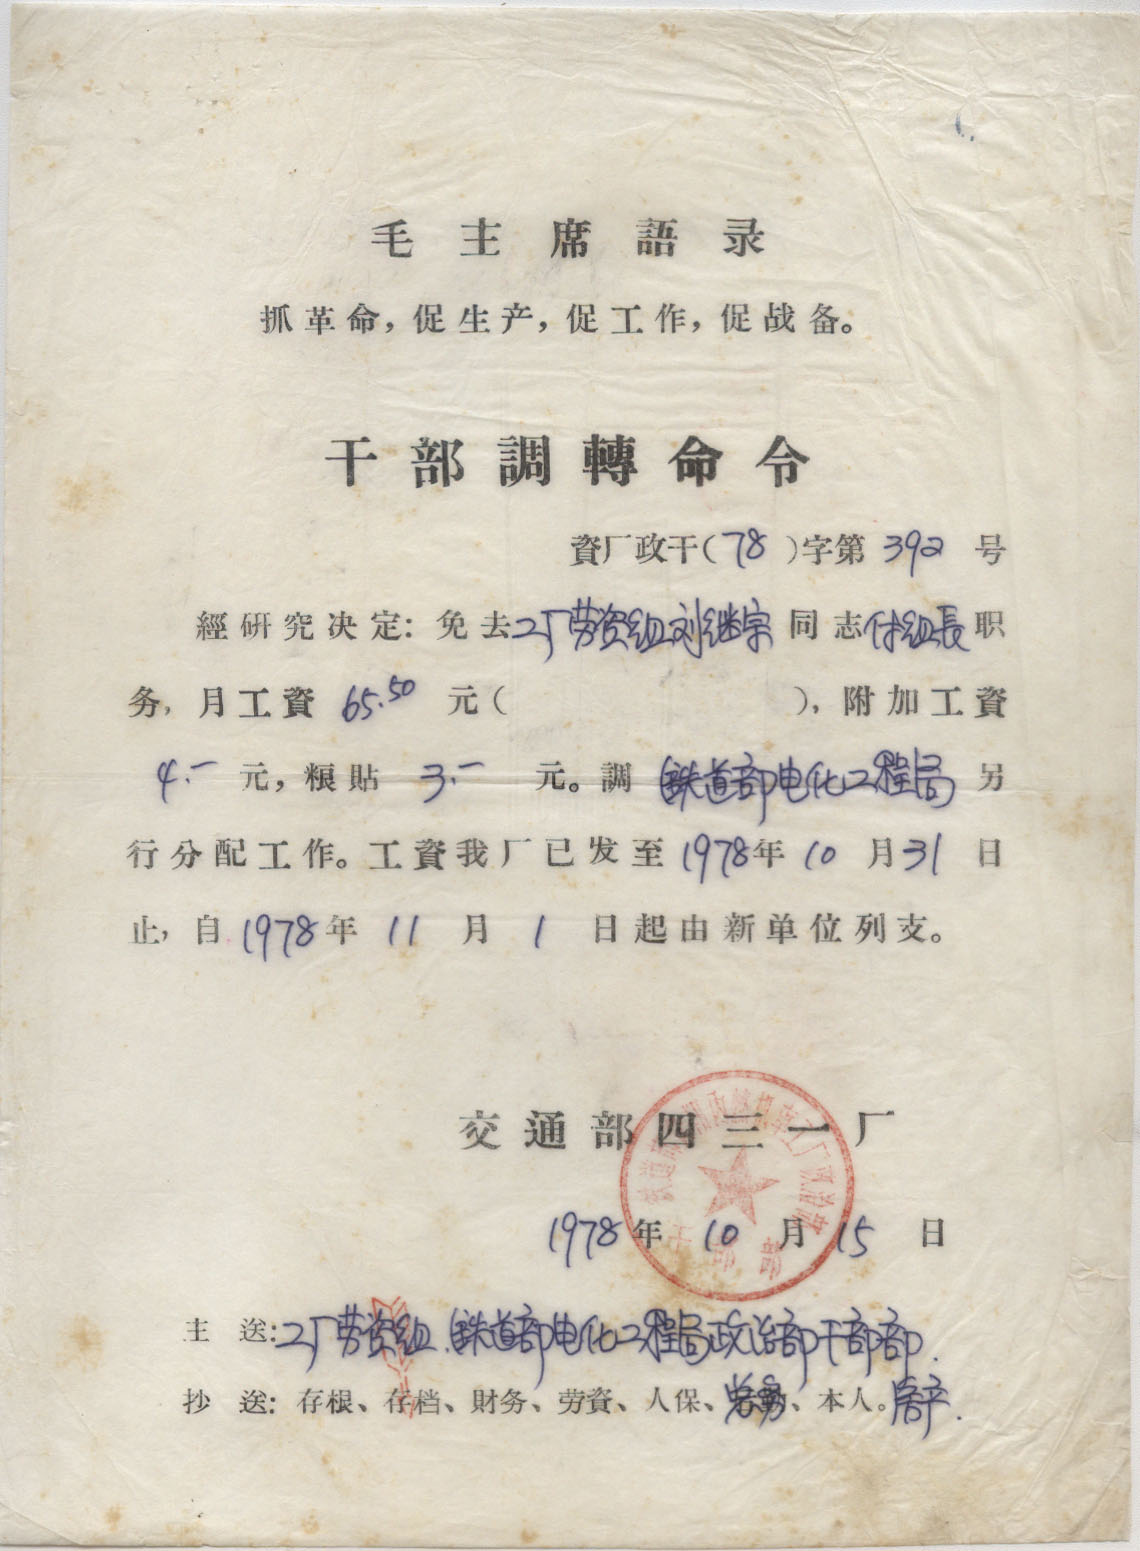 毛主席語录
抓革命，促生产，促工作，促战备。
干部調轉命令
資厂政干（78）字第 392 号
經研究决定：免去工厂劳资组刘继宗同志付组長职
务，月工資 65.50 元（ ），附加工資
4.- 元，粮貼 3.- 元。調 鉄道部电化工程局 另
行分配工作。工資我厂已发至1978年 10 月31 日
止，自1978年 11 月 1 日起由新单位列支。
交通部四三一厂
1978年 10 月 15 日
主 送：工厂劳资组.鉄道部电化工程局政治部干部部.
抄 送：存根、存档、財务、劳資、人保、本人。
干部部